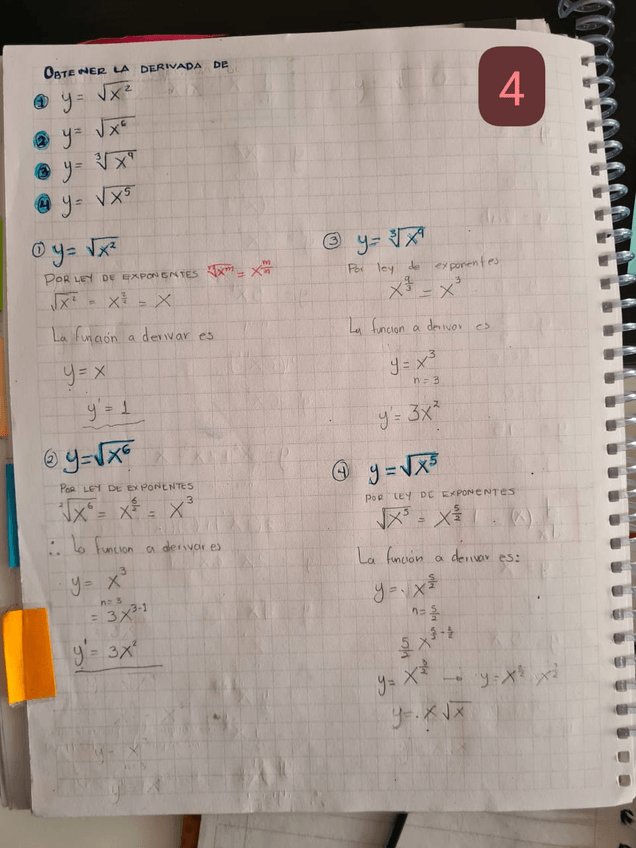 4
OBTENER LA DERIVADA DE
① y = √x²
② y = √x⁶
③ y = ∛x⁹
④ y = √x⁵
① y = √x²
POR LEY DE EXPONENTES ⁿ√xᵐ = x^(m/n)
√x² = x^(2/2) = x
La función a derivar es
y = x
y' = 1
② y = √x⁶
POR LEY DE EXPONENTES
²√x⁶ = x^(6/2) = x³
∴ La funcion a derivar es
y = x³
n = 3
= 3x³⁻¹
y' = 3x²
③ y = ∛x⁹
Por ley de exponentes
x^(9/3) = x³
La funcion a derivar es
y = x³
n = 3
y' = 3x²
④ y = √x⁵
POR LEY DE EXPONENTES
√x⁵ = x^(5/2)
La función a derivar es:
y = x^(5/2)
n = 5/2
y = x √x